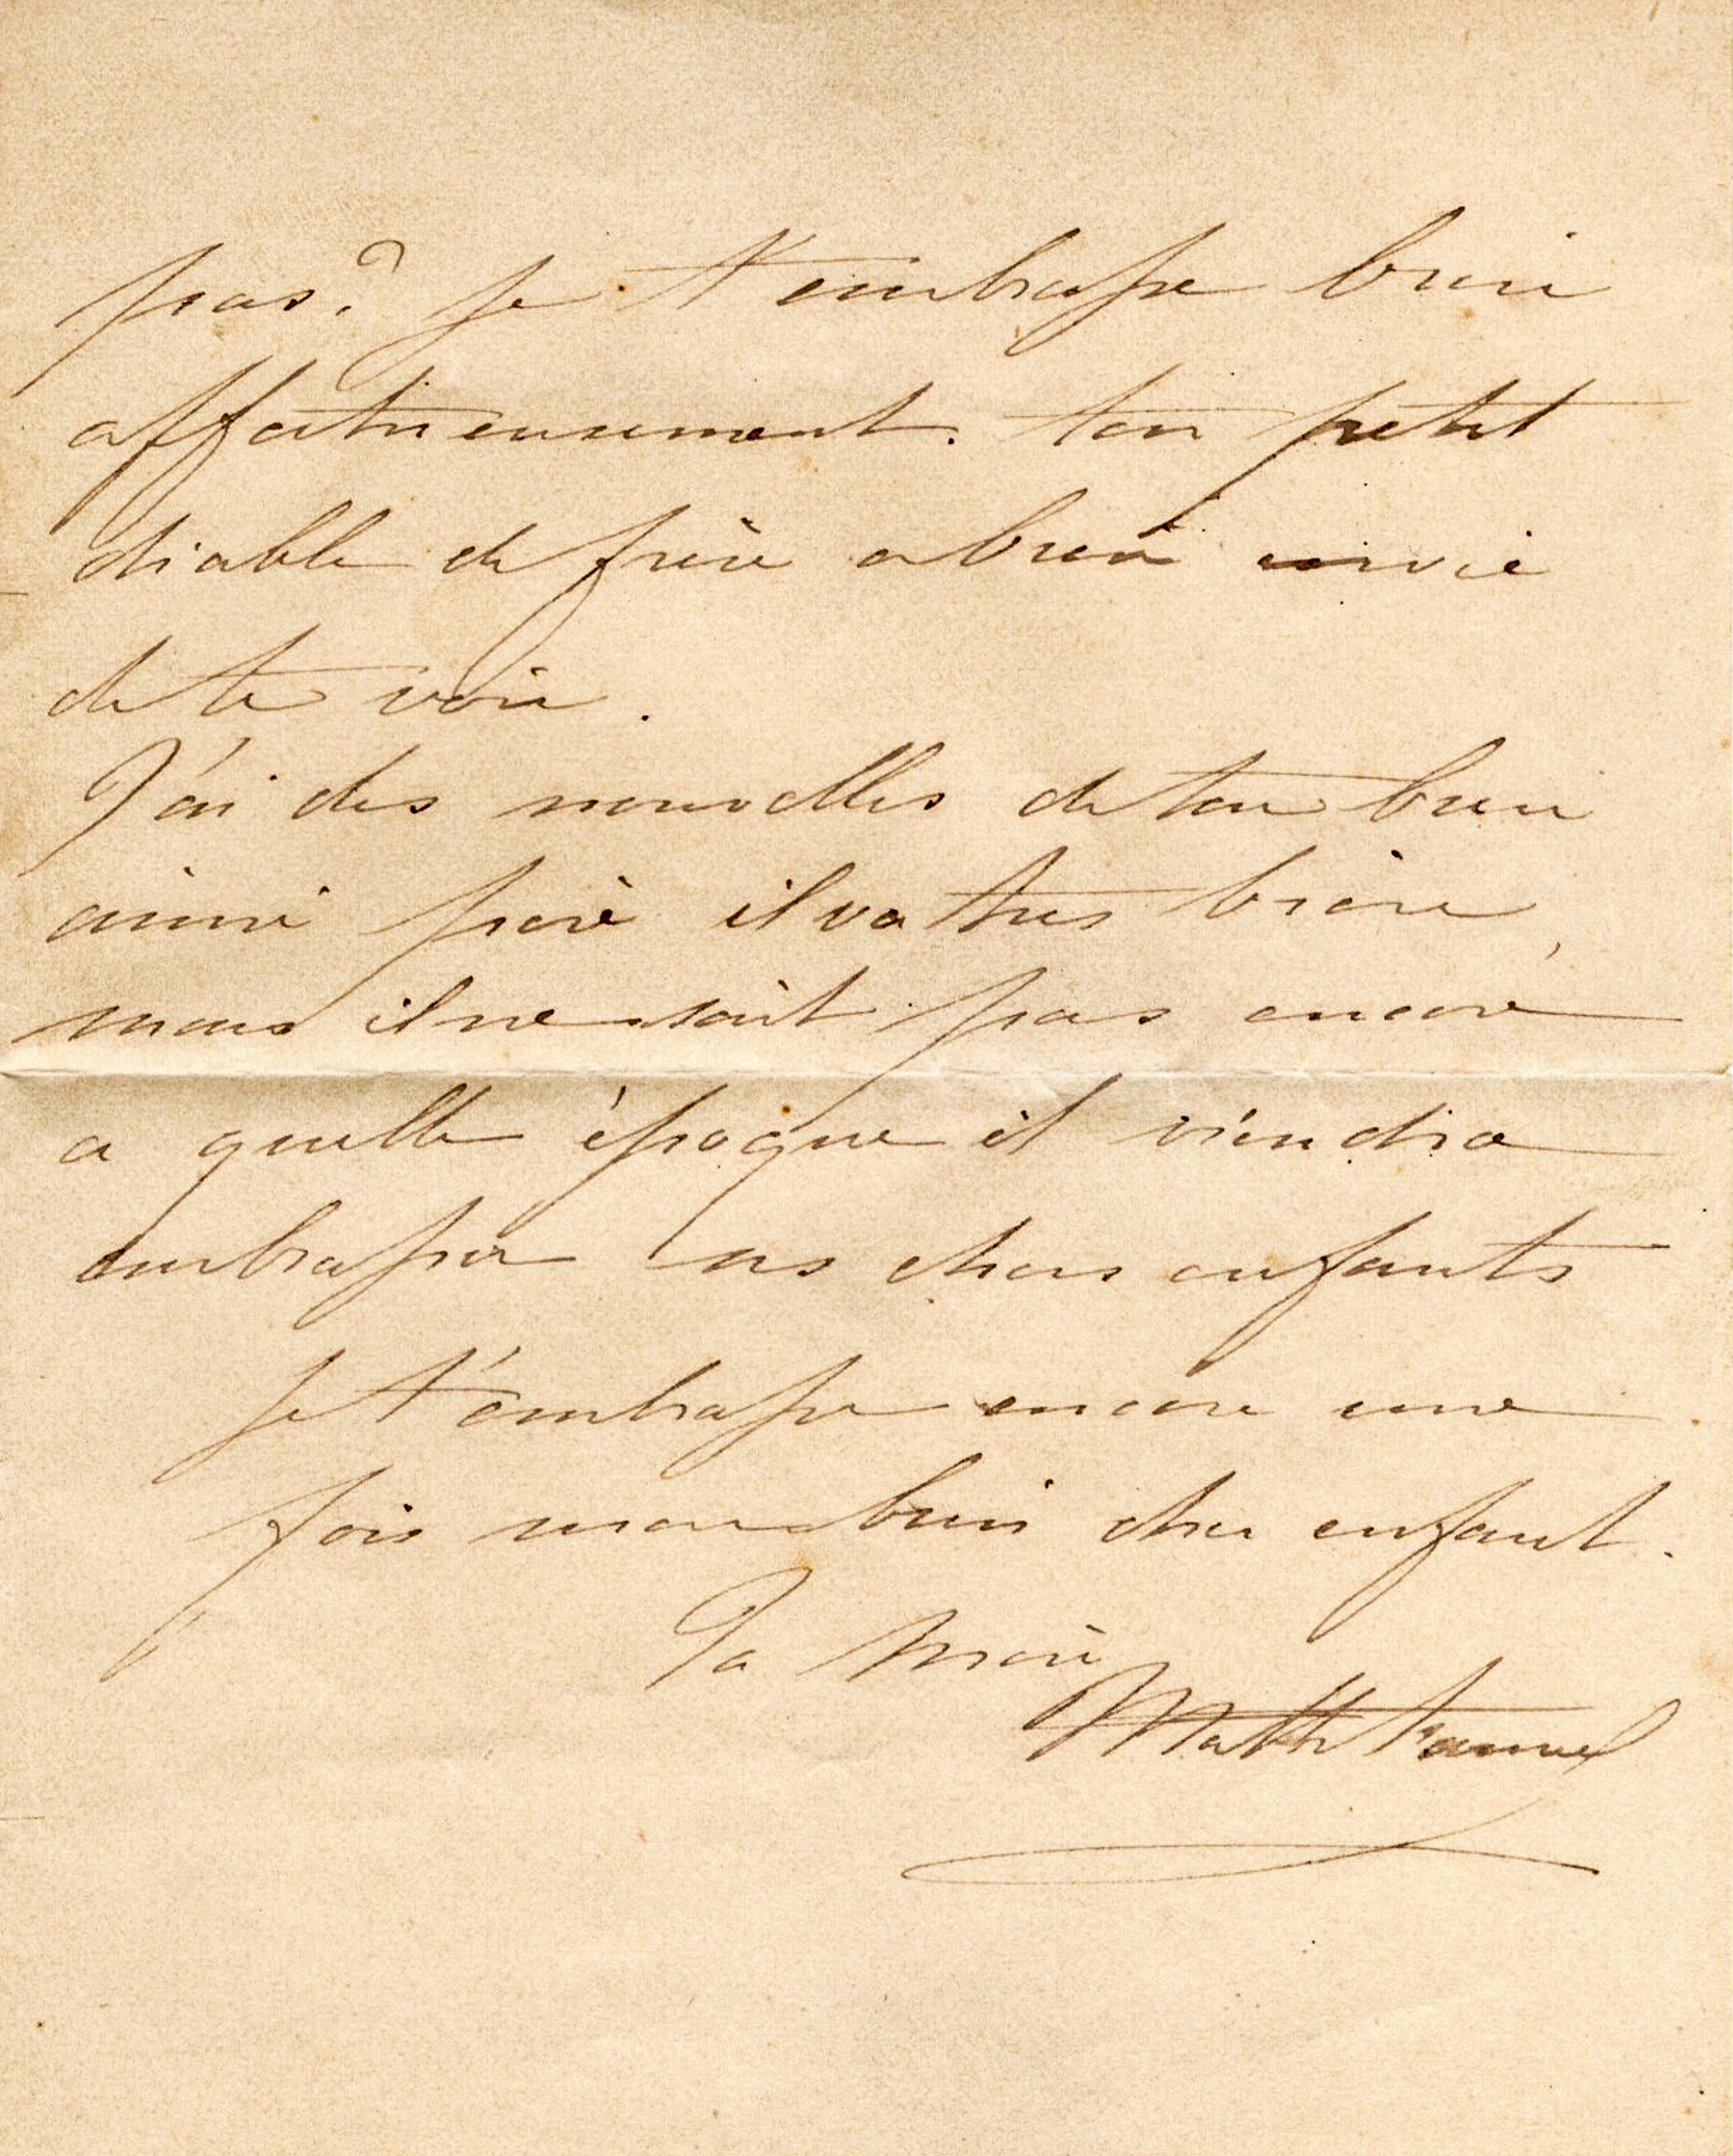 pas? je t'embrasse bien
affectueusement. ton petit
diable de frère a bien envie
de te voir.
J'ai des nouvelles de ton bien
aimé père il va très bien,
mais il ne sait pas encore
a quelle époque il viendra
embrasser ses chers enfants
je t'embrasse encore une
fois mon bien cher enfant.
Ta mère